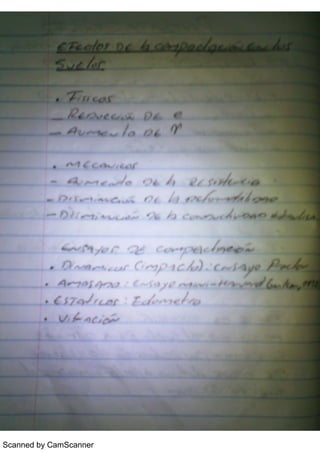 Efectos de la compactación en los
suelos.
• Físicos
— Reducción de e
— Aumento de γ
• Mecánicos
- Aumento de la resistencia
- Disminución de la deformabilidad
- Disminución de la conductividad hidraulica.
Ensayos de compactación
• Dinamicos (impacto): ensayo Proctor
• Amasado: ensayo mini-Harvard
• Estáticos: Edometro
• Vibración
Scanned by CamScanner